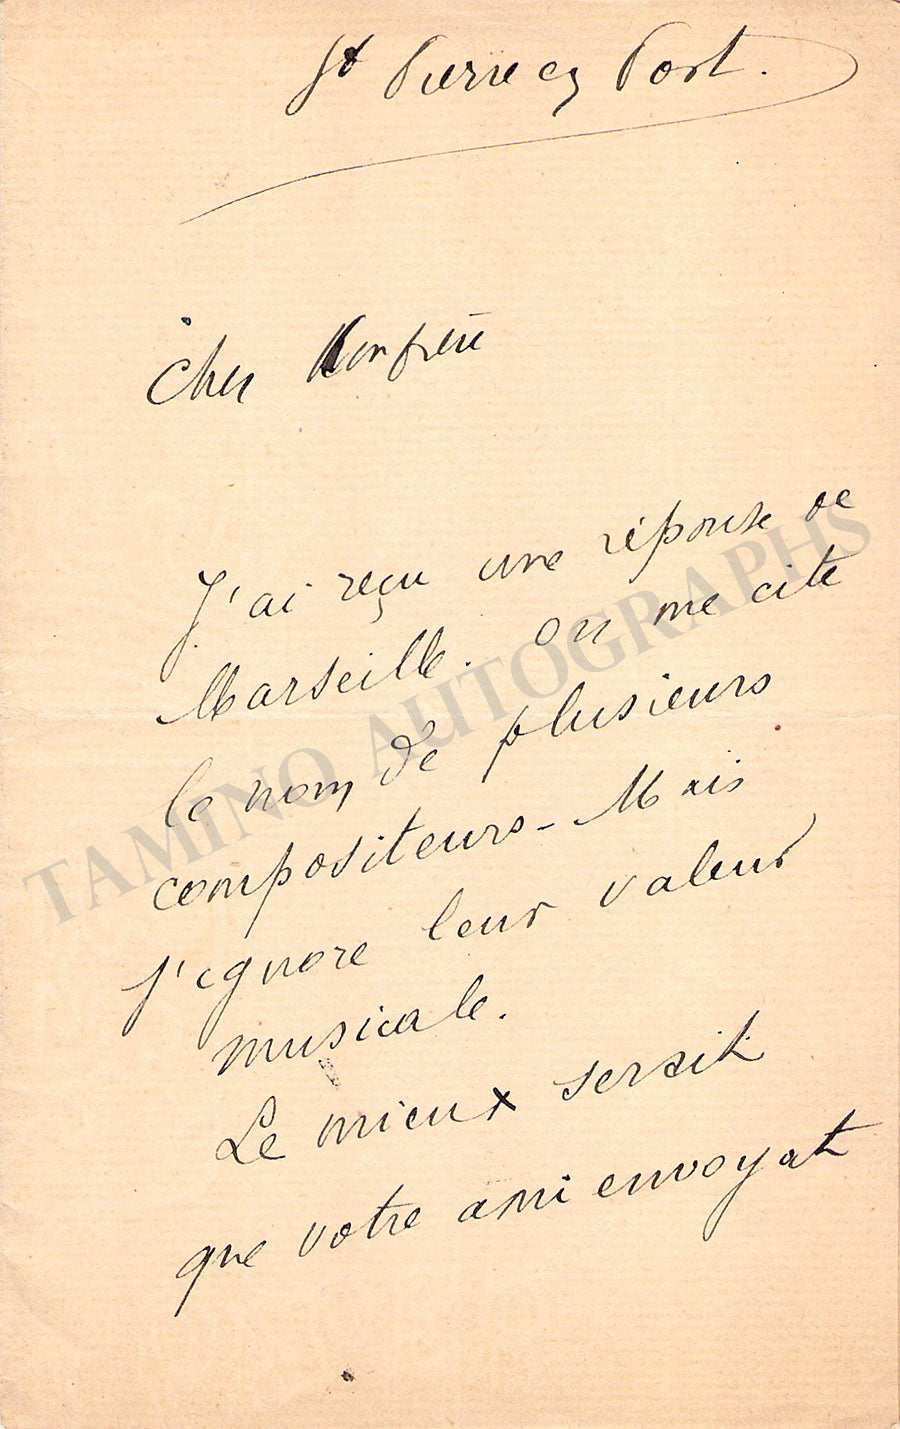 St Pierre en Port.
Cher Confrère
J'ai reçu une réponse de
Marseille. On me cite
le nom de plusieurs
compositeurs - Mais
j'ignore leur valeur
musicale.
Le mieux serait
que votre ami envoyat
TAMINO AUTOGRAPHS